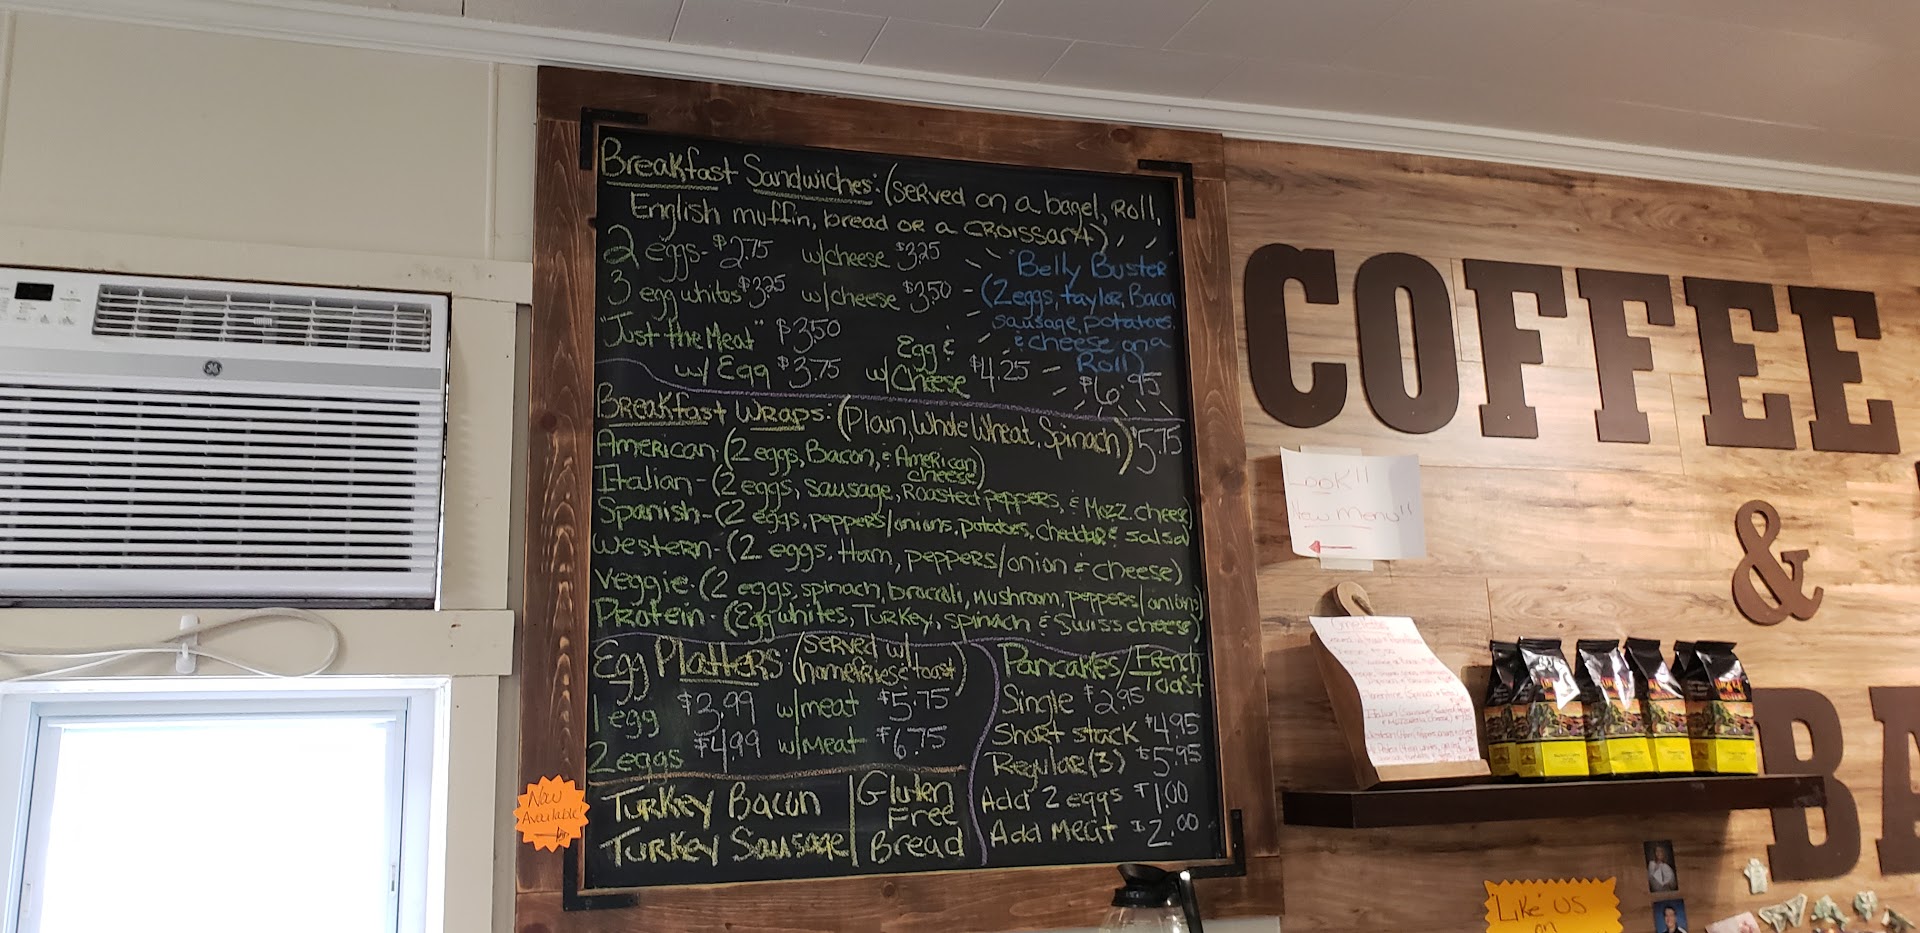 Breakfast Sandwiches: (served on a bagel, Roll,
English muffin, bread or a croissant)
2 eggs- $2.75 w/cheese $3.25
3 egg whites $3.25 w/cheese $3.50
"Just the Meat" $3.50
w/ Egg $3.75 Egg & w/Cheese $4.25
"Belly Buster"
(2 eggs, taylor, Bacon
sausage, potatoes
& cheese on a
Roll)
$6.95
Breakfast Wraps: (Plain, Whole Wheat, Spinach) $5.75
American (2 eggs, Bacon, & American
cheese)
Italian- (2 eggs, sausage, Roasted peppers, & Mozz. cheese)
Spanish- (2 eggs, peppers/onions, potatoes, cheddar & salsa
Western- (2 eggs, Ham, peppers/onion & cheese)
Veggie- (2 eggs, spinach, broccoli, mushroom, peppers/onions)
Protein- (Egg whites, Turkey, spinach & Swiss cheese)
Egg Platters: (served w/
homefries & toast)
1 egg $2.99 w/meat $5.75
2 eggs $4.99 w/meat $6.75
Pancakes/French
toast
Single $2.95
Short stack $4.95
Regular (3) $5.95
Add 2 eggs $1.00
Add Meat $2.00
Now
Available
Turkey Bacon
Turkey Sausage
Gluten
Free
Bread
COFFEE
&
BA
Look!!
New Menu!!
Omelettes
"Like" US
on
GE